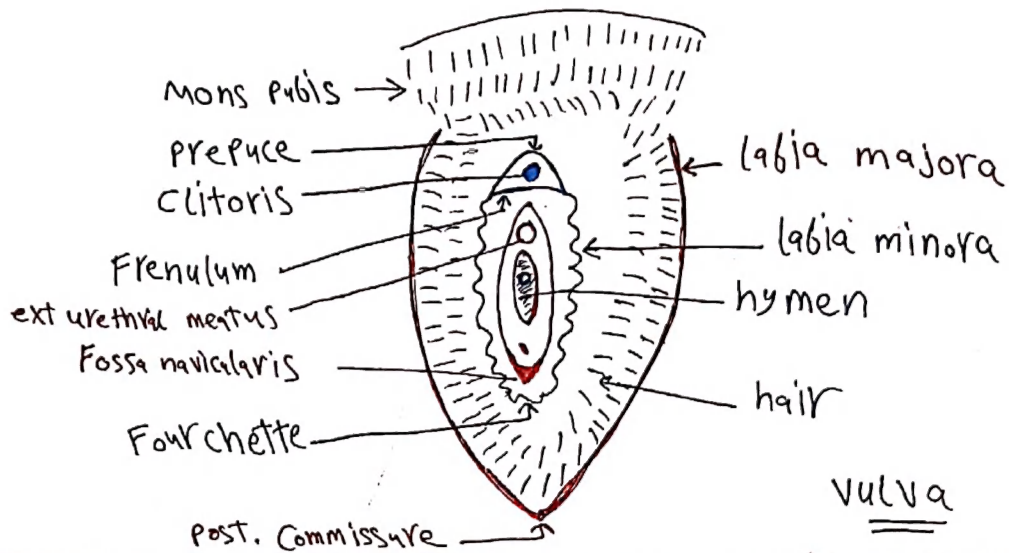 Mons pubis
prepuce
Clitoris
Frenulum
ext urethral meatus
Fossa navicularis
Fourchette
post. Commissure
labia majora
labia minora
hymen
hair
vulva